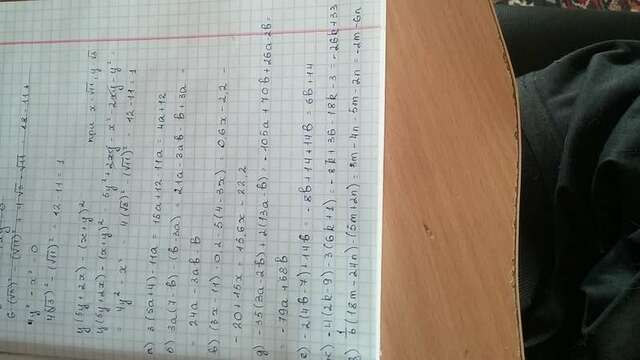 6·(√3)² - (√11)² + 4·√3 - √11 = 18 - 11 +
4y² - x² = 0
4(√3)² - (√11)² = 12 - 11 = 1
y(5y+2x) - (x+y)² при x=√11, y=√3
y(5y+2x) - (x+y)² 5y²+2xy - x² - 2xy - y² =
= 4y² - x² 4(√3)² - (√11)² = 12 - 11 = 1
а) 3(5a+4) - 11a = 15a + 12 - 11a = 4a+12
б) 3a(7-b) - (b-3a) = 21a - 3ab - b + 3a =
24a - 3ab - b
в) (3x-11)·0,2 - 5(4-3x) = 0,6x - 2,2 -
- 20 + 15x = 15,6x - 22,2
д) -35(3a-2b) + 2(13a-b) = -105a + 70b + 26a - 2b =
= -79a + 68b
е) -2(4b-7) + 14b = -8b + 14 + 14b = 6b+14
ж) -4(2k-9) - 3(6k+1) = -8k + 36 - 18k - 3 = -26k+33
з) 1/6(18m-24n) - (5m+2n) = 3m - 4n - 5m - 2n = -2m - 6n